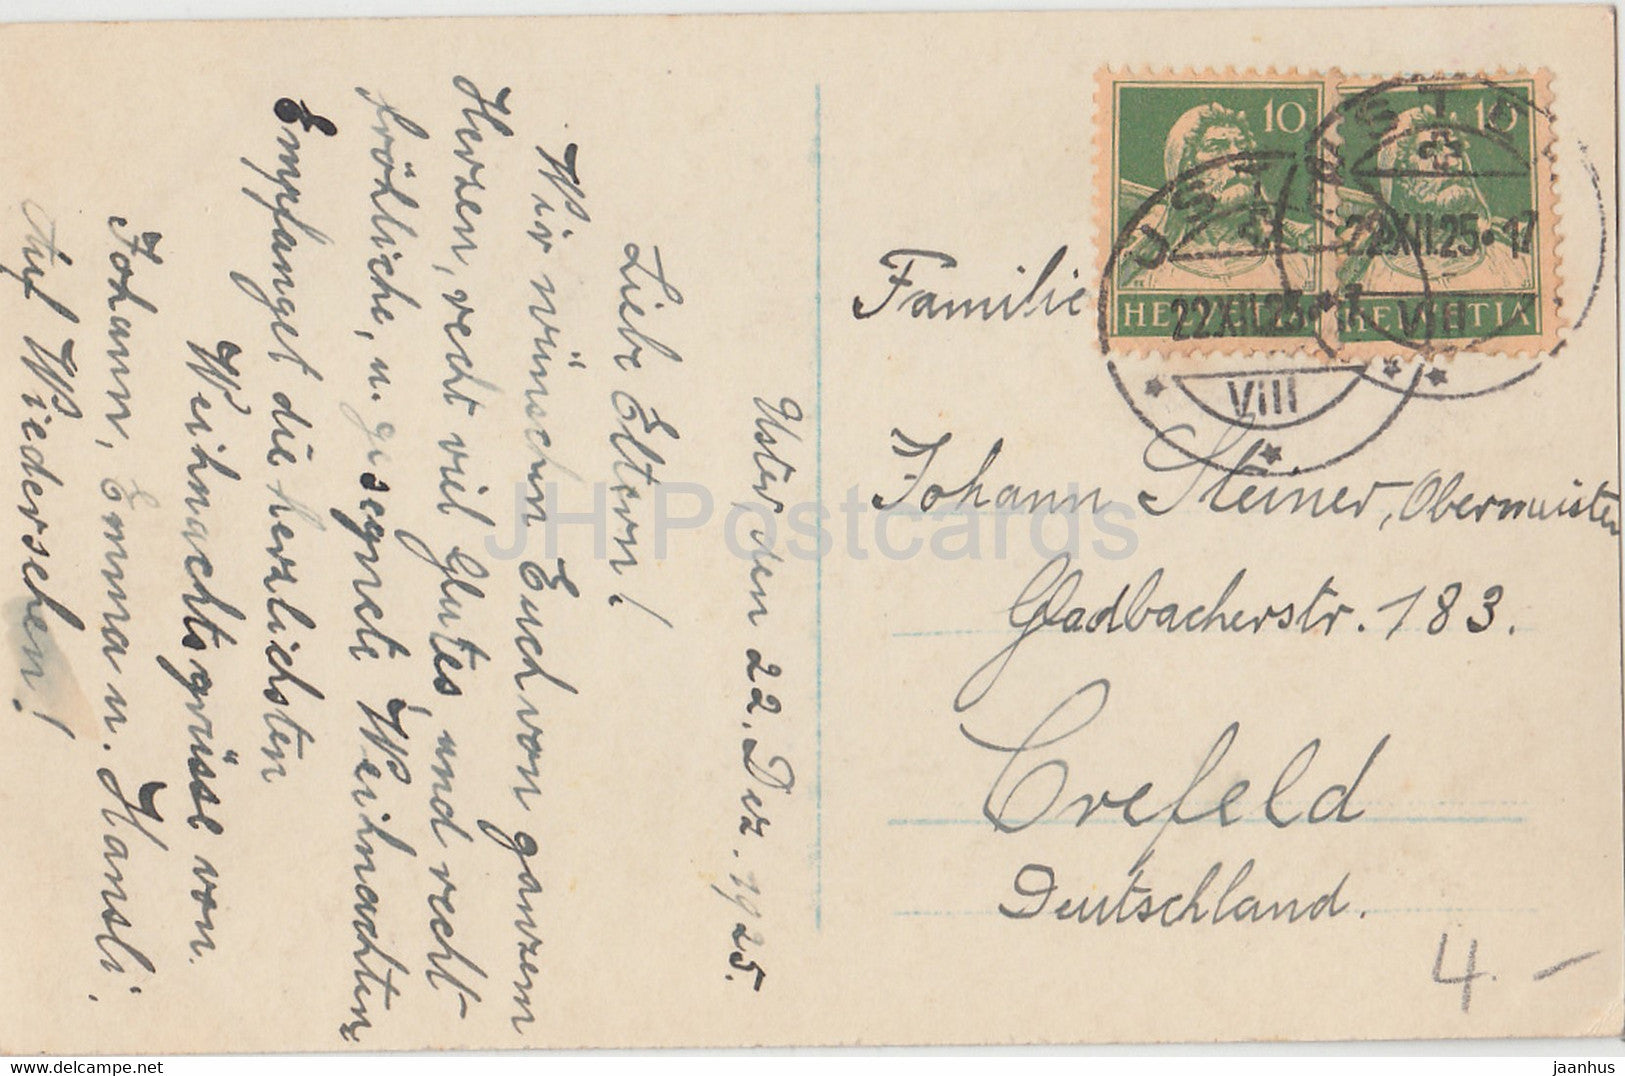 Uster, den 22. Dez. 1925.
Liebe Eltern!
Wir wünschen Euch von ganzem
Herzen, recht viel Gutes, und recht
fröhliche, u. gesegnete Weihnachten,
Empfanget die herzlichsten
Weihnachtsgrüsse von
Johann, Emma u. Hansli.
Auf Wiedersehen!
10
10
HELVETIA
HELVETIA
USTER
22.XII.25
VIII
USTER
22.XII.25•17
VIII
Familie
Johann Steiner, Obermeister
Gladbacherstr. 183.
Crefeld
Deutschland.
4.-
JH Postcards
www.delcampe.net
jaanhus